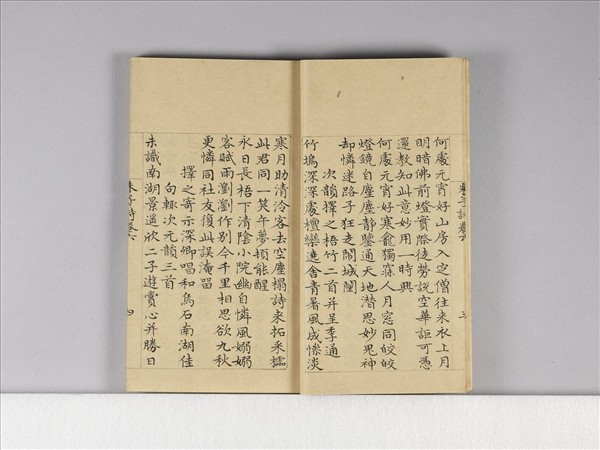 何處元宵好山房入定僧往來衣上月
明暗佛前燈實際徒勞說空華詎可憑
還教知此意妙用一時興
何處元宵好寒龕獨寐人月窓同皎皎
燈鏡自塵塵靜鑒通天地潜思妙鬼神
却憐迷路子狂走鬧城闉
次韻擇之梧竹二首并呈季通
竹塢深深處檀欒遶舍青暑風成慘淡
寒月助清泠客去空塵榻詩来拓采櫺
此君同一笑午夢頓能醒
永日長梧下清陰小院幽自憐風嫋嫋
客賦雨瀏瀏作別今千里相思欲九秋
更憐同社友復此誤淹留
擇之寄示深卿唱和烏石南湖佳
句輒次元韻三首
未識南湖景遥欣二子遊賞心并勝日
朱子詩卷六
三
朱子詩卷六
四